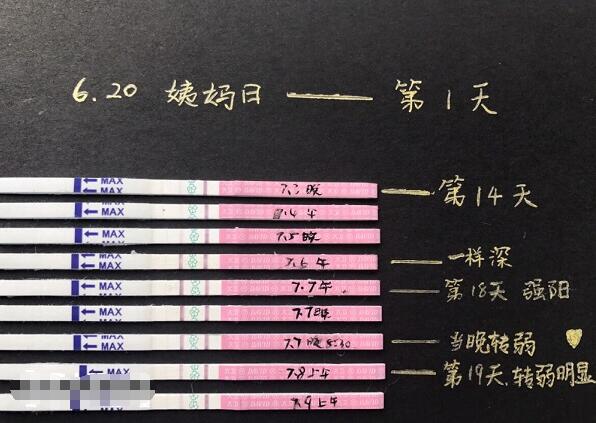 6.20 姨妈日 —— 第1天
MAX 7.3晚 —— 第14天
MAX 7.4午
MAX 7.5晚
MAX 7.6午 —— 一样深
MAX 7.7午 —— 第18天 强阳
MAX
MAX 7.7晚8:30 —— 当晚转弱
MAX 7.8上午 —— 第19天.转弱明显
7.9上午